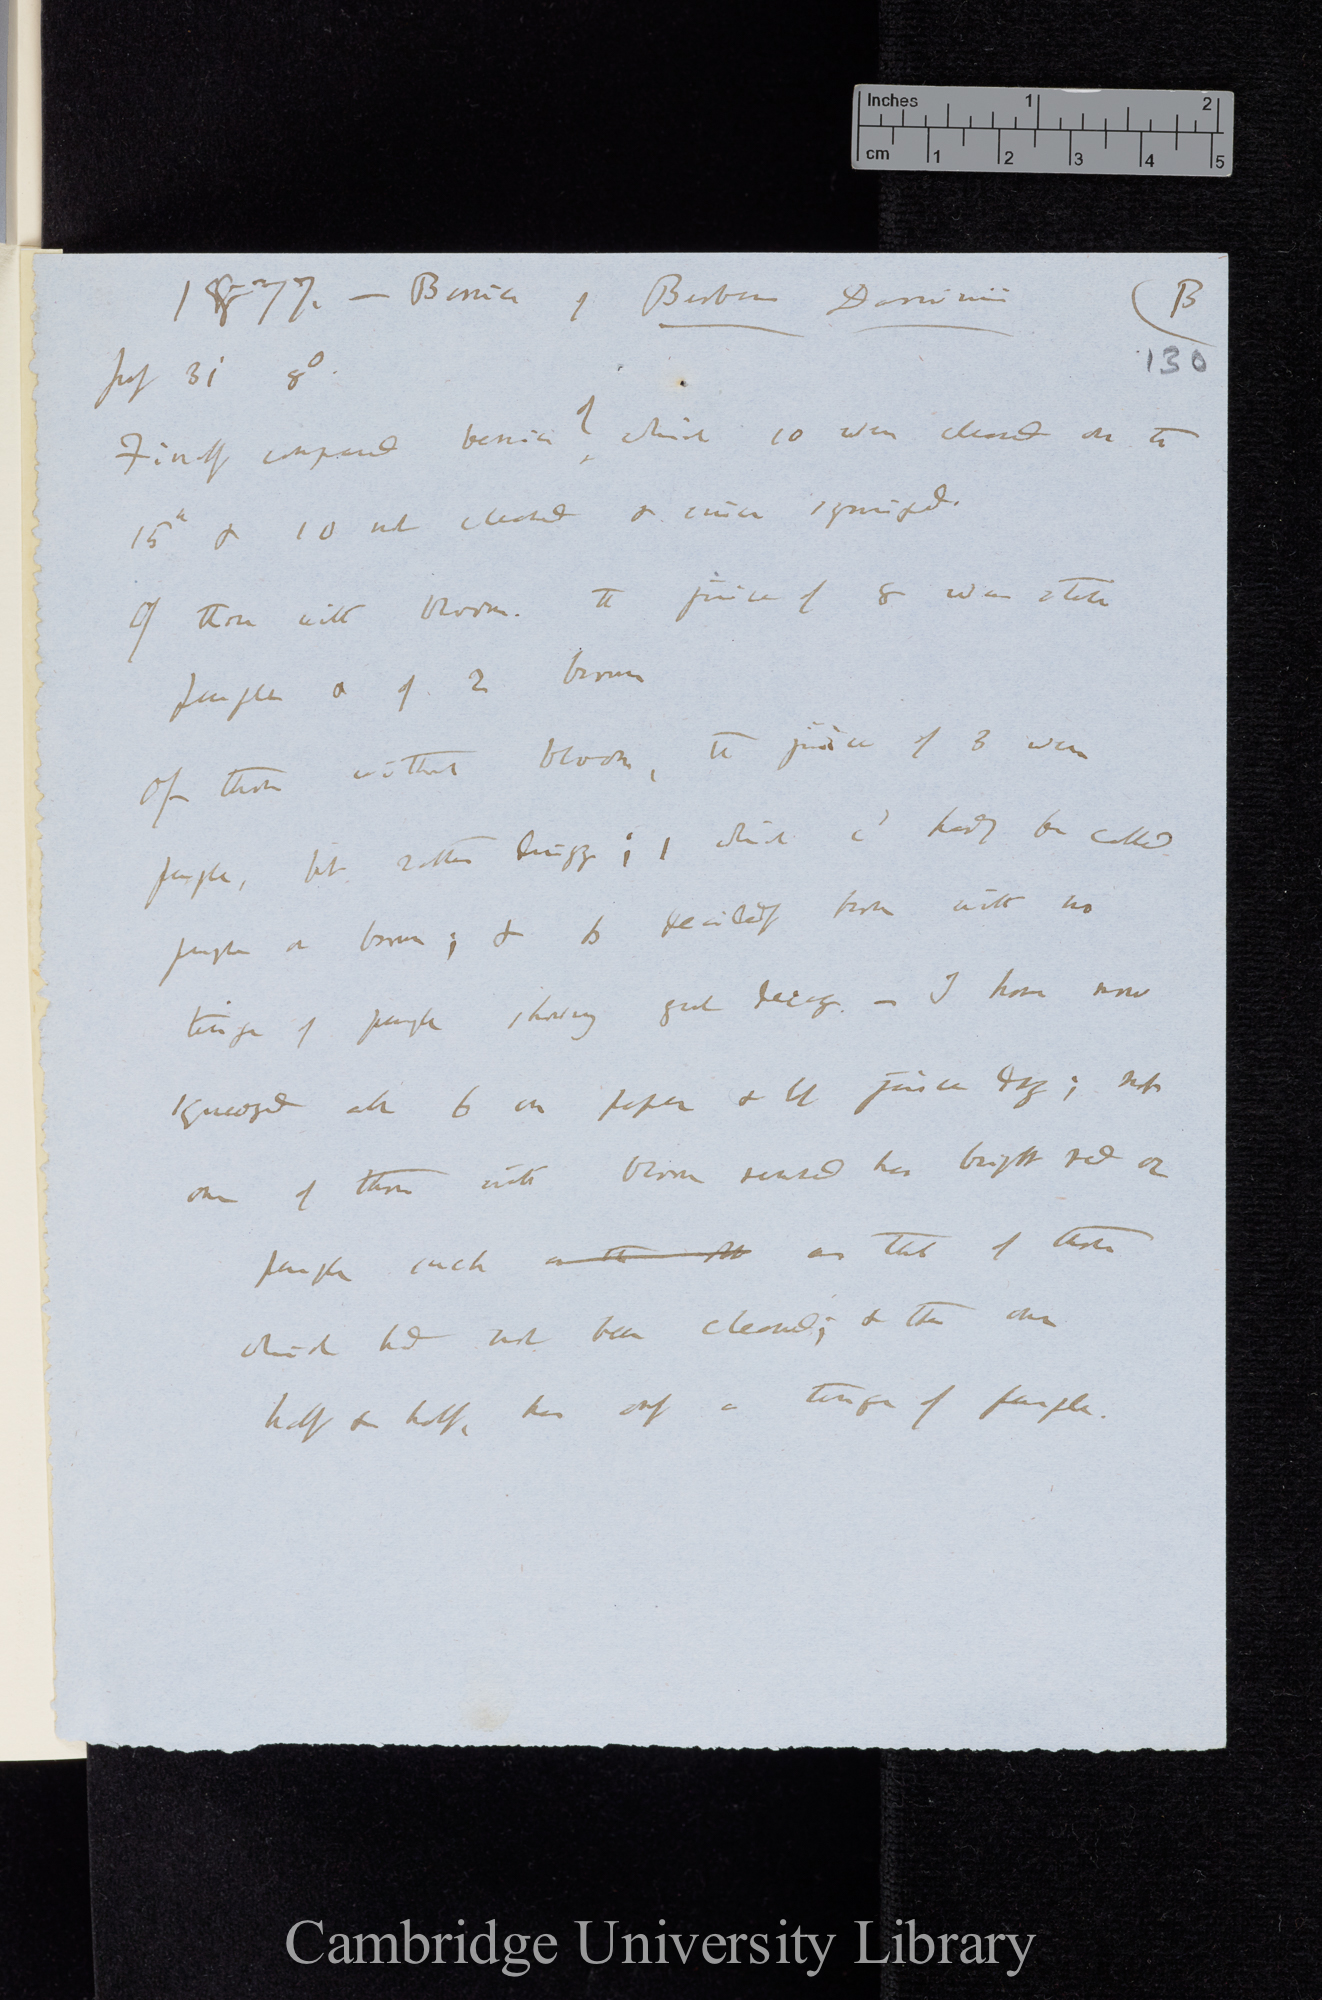 Inches 1 2
cm 1 2 3 4 5
1877. — Berries of Berberis Darwinii (B
130
July 31 8°.
Finally compared berries of which 10 were cleaned on the
15th & 10 not cleaned & since syringed.
Of those with bloom. the juice of 8 was still
purple & of 2 brown
Of those without bloom, the juice of 3 were
purple, but rather dingy; 1 which cd hardly be called
purple or brown; & 6 decidedly brown with no
tinge of purple showing great decay. — I have now
squeezed all 6 on paper & let juice dry; not
one of those with bloom removed has bright red or
purple such as that of those
which had not been cleaned; & the one
half & half, has only a tinge of purple.
Cambridge University Library